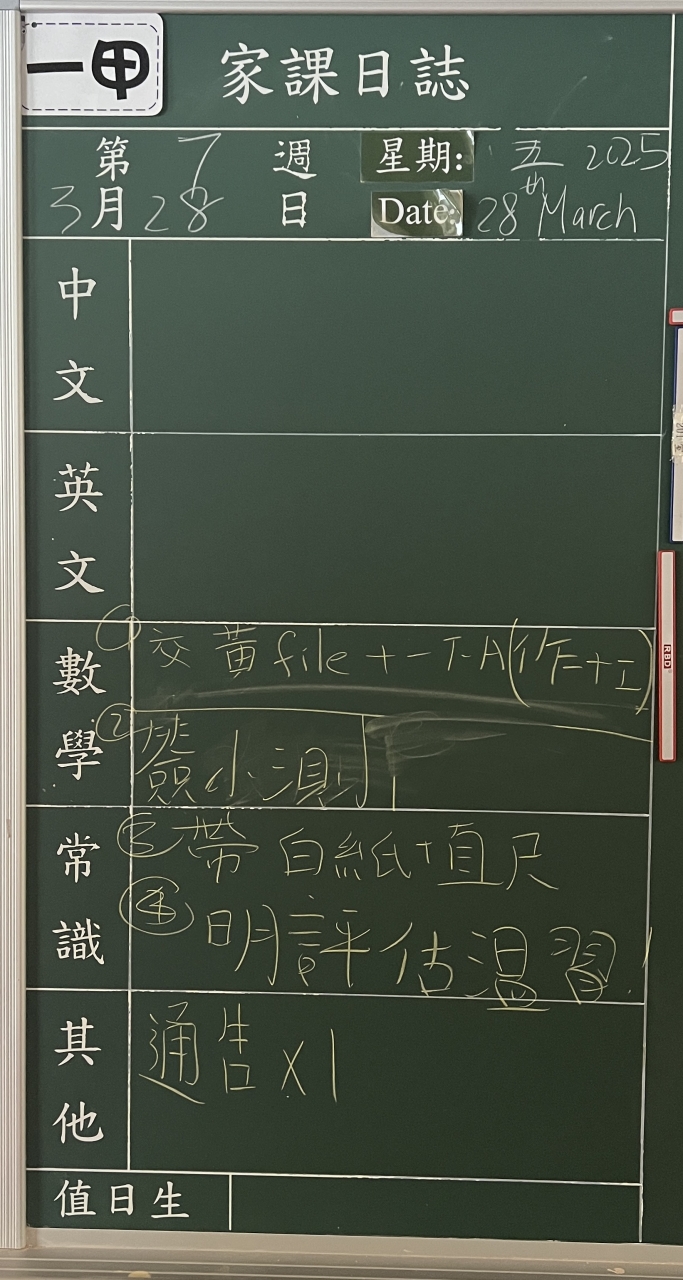 一甲
家課日誌
第 7 週 星期: 五 2025
3月28日 Date: 28th March
中文
英文
數學
① 交黃file + 一下A(作+工)
② 簽小測
常識
③ 帶白紙+直尺
④ 明評估溫習!
其他
通告 x 1
值日生
RBD